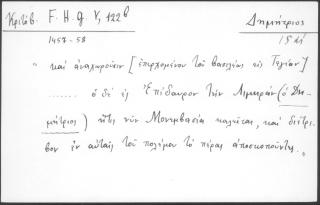 Κριτόβ. F. H. G. V, 122ᵇ Δημήτριος
1457-58 15 αἰ
" καὶ ἀναχωροῦσιν [ἐπερχομένου τοῦ βασιλέως εἰς Τεγέαν]
....... ὁ δὲ ἐς Ἐπίδαυρον τὴν Λιμηρὰν (ὁ Δη-
μήτριος) ἥτις νῦν Μονεμβασία καλεῖται, καὶ διέτρι-
βον ἐν αὐταῖς τοῦ πολέμου τὸ πέρας ἀποσκοποῦντες.